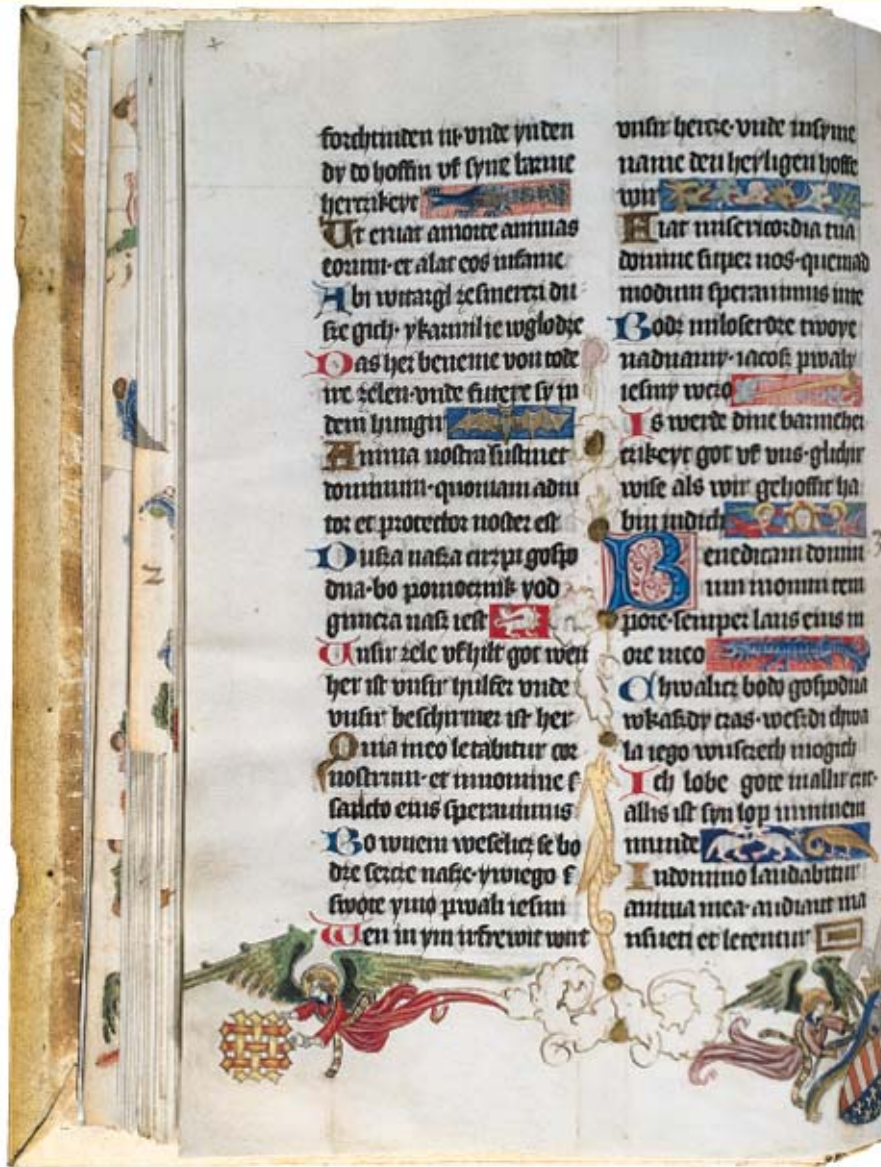 forchtinden in·vnde ynden
dy do hoffin vf syne barme
herczikeyt
Ut eruat amorte animas
eorum·et alat eos infame
Abi witargl zsmerczi du
sze gich·ykarmil ie wglodze
Das her beneme von tode
ire zelen·vnde fuere sy in
dem hungir
Anima nostra sustinet
dominum·quoniam adiu
tor et protector noster est
Dusza nasza cirzpi gospo
dna·bo pomocznik yod
gimcza nasz iest
Unsir zele vfhilt got wen
her ist vnsir hulfer vnde
vnsir beschirmer ist her
Quia ineo letabitur cor
nostrum·et innomine s
sancto eius sperauimus
Bo wniem weselicz se bo
dze sercze nasze·ywiego s
swote ymo pwali iesmi
Wen in ym irfrewit wirt
vnsir hercze·vnde insyme
name den heyligen hoffe
wir
Fiat misericordia tua
domine super nos·quemad
modum sperauimus inte
Bodz miloserdze twoye
nadnamy·iacosz pwaly
iesmy wczo
Is werde dine barmeher
czikeyt got vf vns·glichir
wise als wir gehoffit ha
bin indich
Benedicam domi
num inomni tem
pore·semper laus eius in
ore meo
Chwalicz bodo gospodna
wkaszdy czas·weszdi chwa
la iego wuszczech mogich
Ich lobe gote inallir czit·
allis ist syn lop inminem
munde
Indomino laudabitur
anima mea·audiant ma
nsueti et letentur